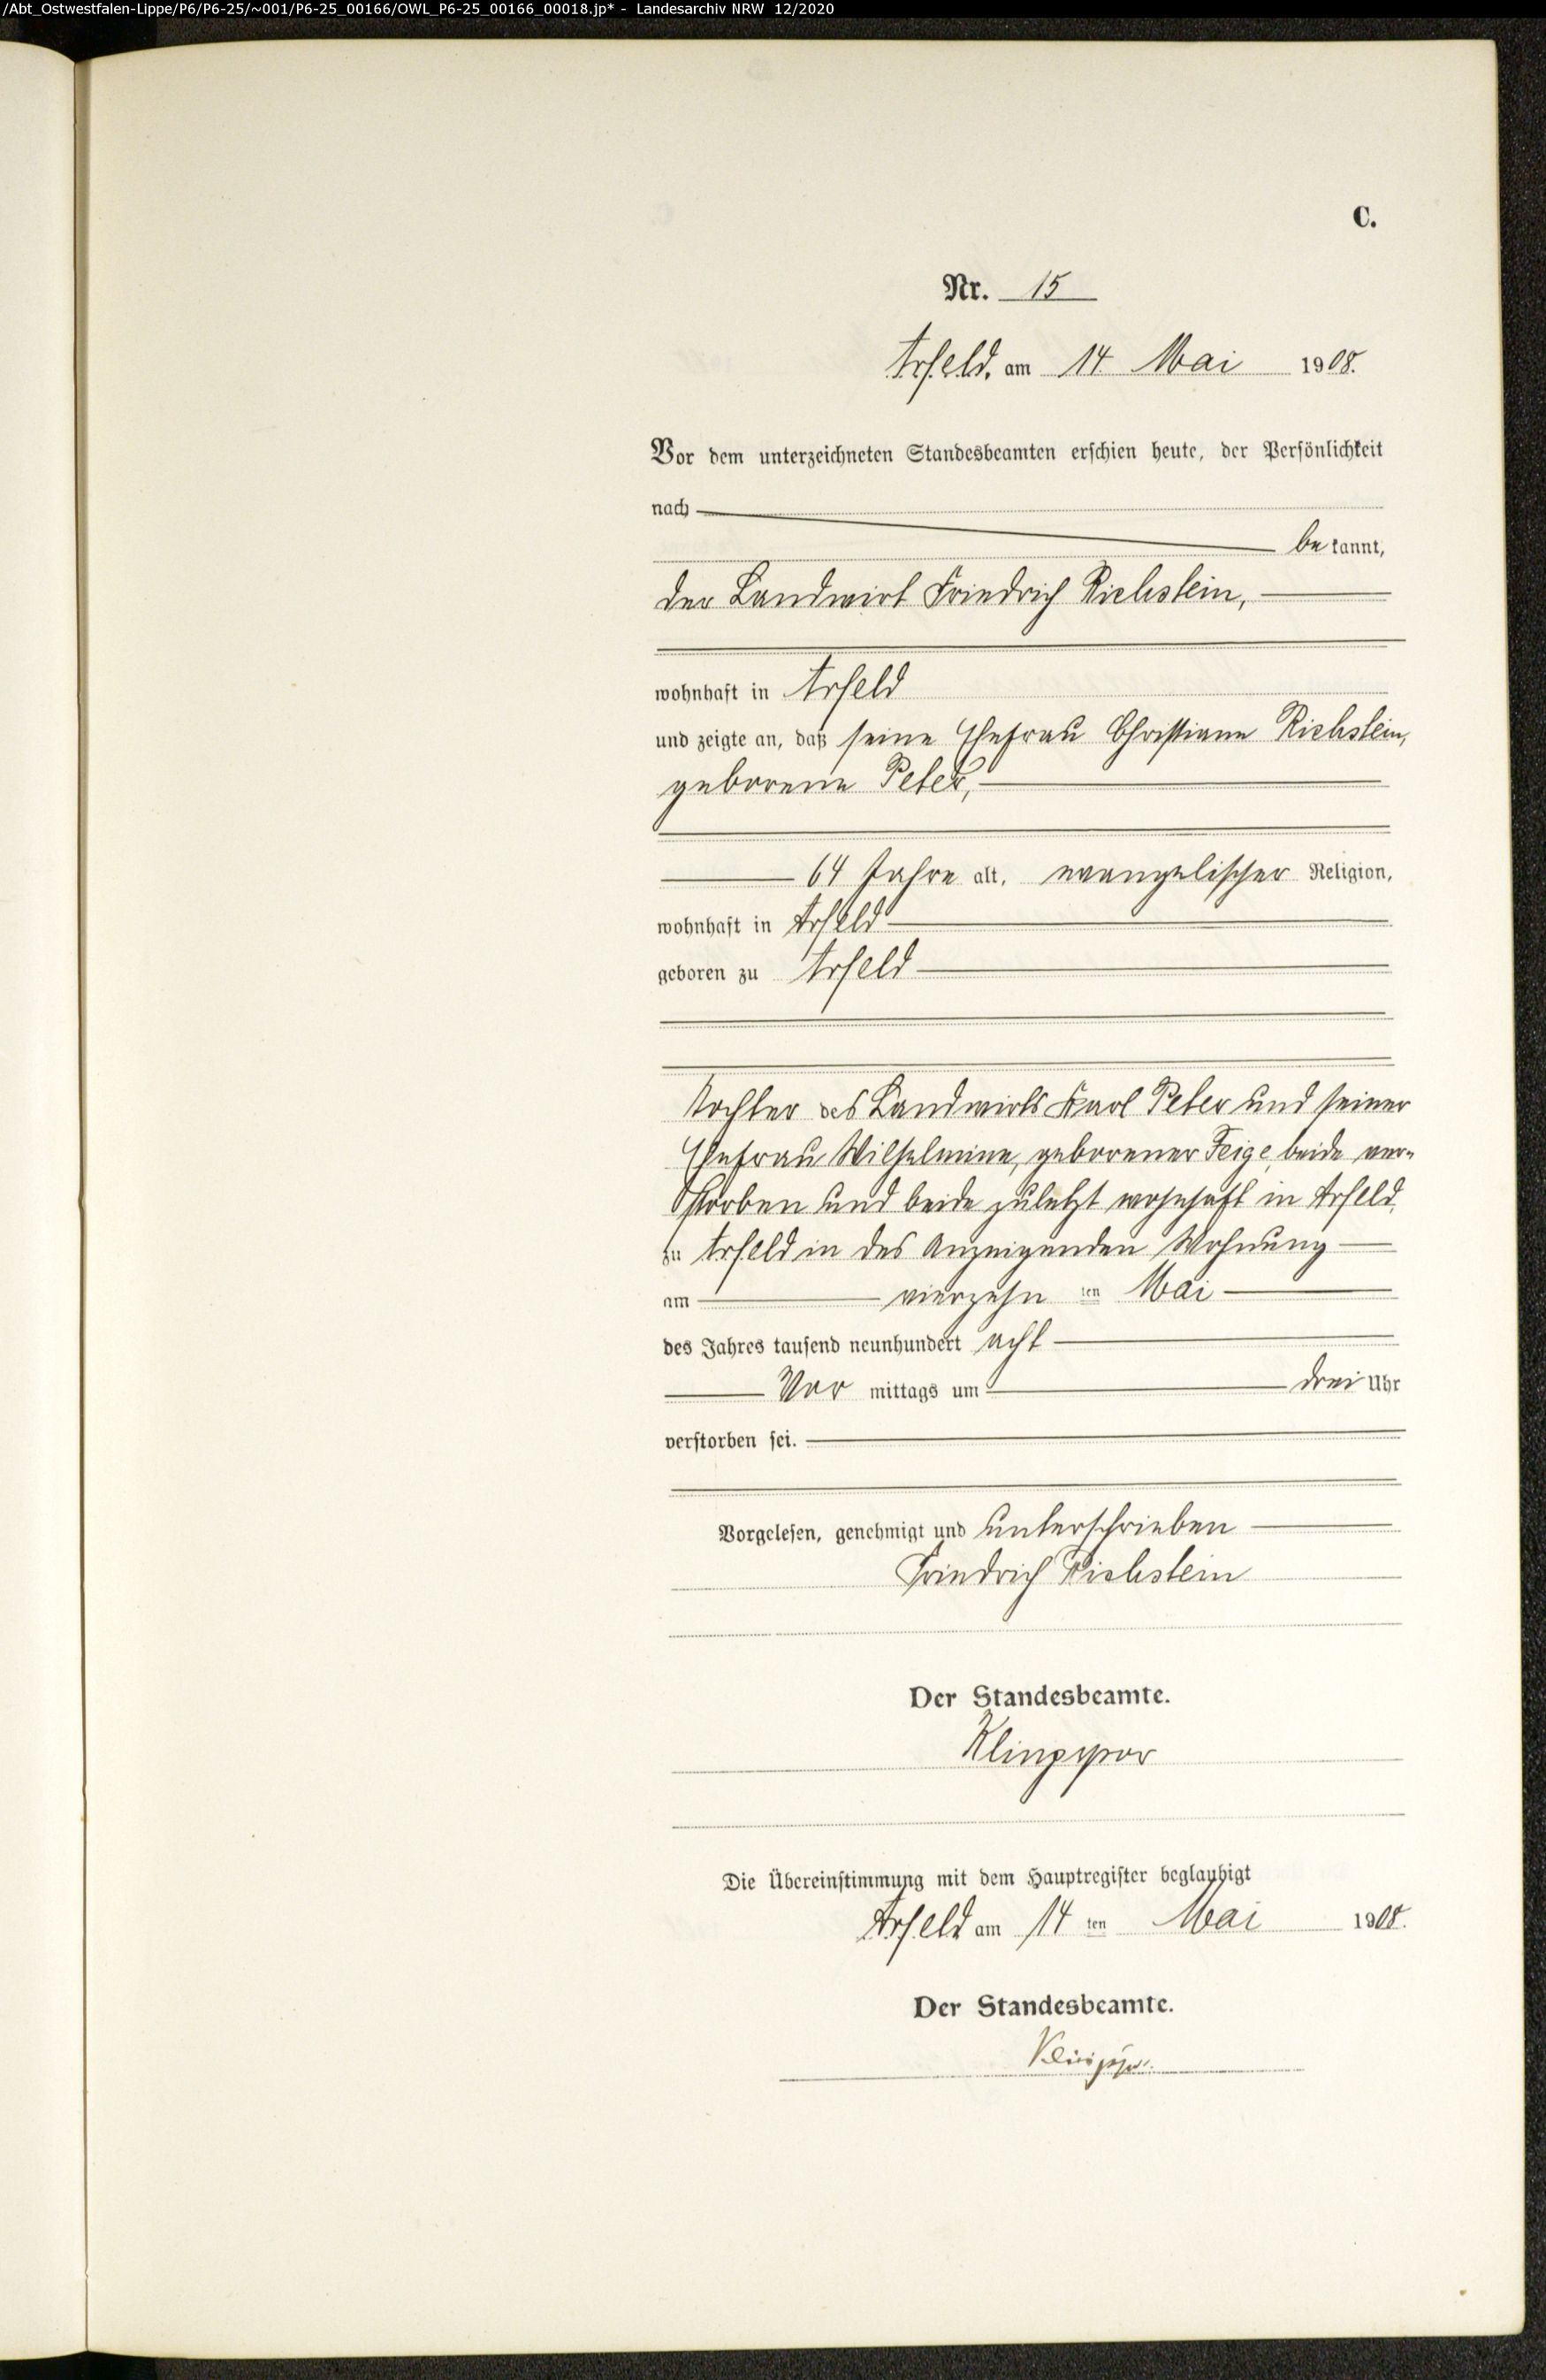 /Abt_Ostwestfalen-Lippe/P6/P6-25/~001/P6-25_00166/OWL_P6-25_00166_00018.jp* - Landesarchiv NRW 12/2020
C.
Nr. 15
Arfeld, am 14 Mai 1908.
Vor dem unterzeichneten Standesbeamten erschien heute, der Persönlichkeit
nach
be kannt,
der Landwirt Friedrich Richstein,
wohnhaft in Arfeld
und zeigte an, daß seine Ehefrau Christiane Richstein,
geborene Peter,
64 Jahre alt, evangelischer Religion,
wohnhaft in Arfeld
geboren zu Arfeld
Tochter des Landwirts Karl Peter und seiner
Ehefrau Wilhelmine, geborener Feige, beide ver-
storben und beide zuletzt wohnhaft in Arfeld,
zu Arfeld in des Anzeigenden Wohnung
am vierzehn ten Mai
des Jahres tausend neunhundert acht
Vor mittags um drei Uhr
verstorben sei.
Vorgelesen, genehmigt und unterschrieben
Friedrich Richstein
Der Standesbeamte.
Klingspor
Die Übereinstimmung mit dem Hauptregister beglaubigt
Arfeld am 14 ten Mai 1908.
Der Standesbeamte.
Klingspor